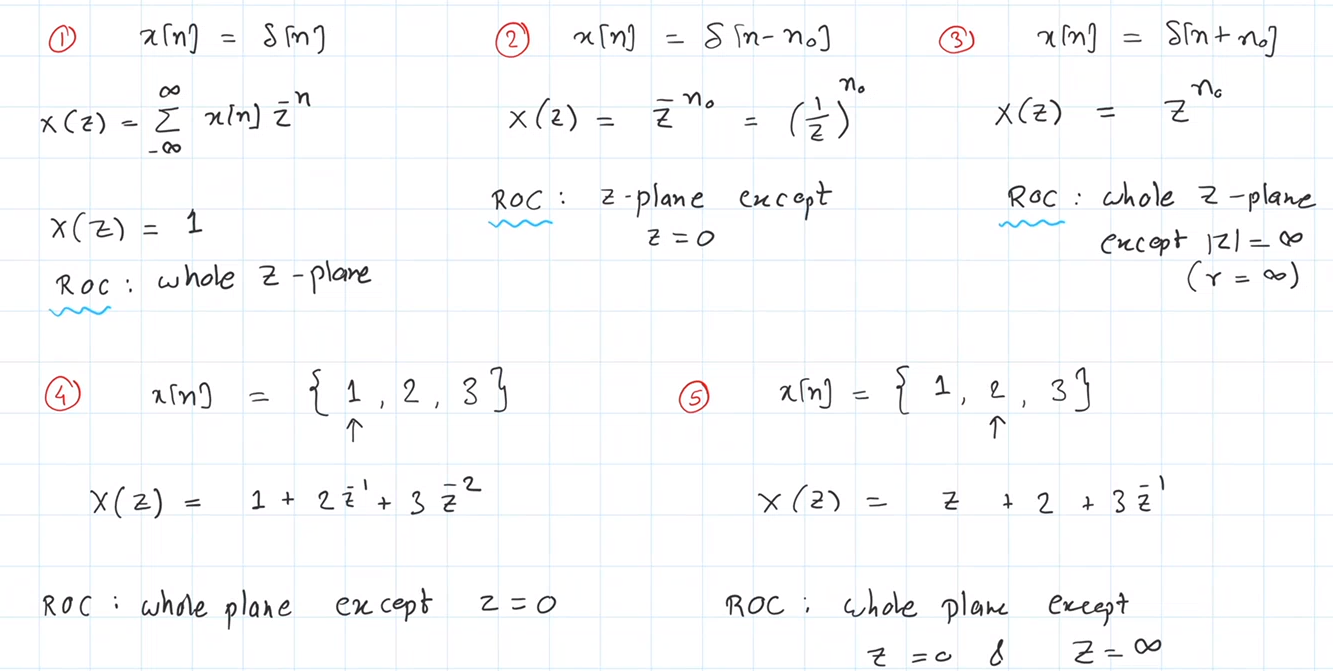 ① x[n] = δ[n]
X(z) = ∞ Σ -∞ x[n] z⁻ⁿ
X(z) = 1
ROC : whole z-plane
② x[n] = δ[n-n₀]
X(z) = z^-n₀ = (1/z)^n₀
ROC : z-plane except
z = 0
③ x[n] = δ[n+n₀]
X(z) = z^n₀
ROC : whole z-plane
except |z| = ∞
(r = ∞)
④ x[n] = { 1 , 2 , 3 }
↑
X(z) = 1 + 2 z⁻¹ + 3 z⁻²
ROC : whole plane except z = 0
⑤ x[n] = { 1 , 2 , 3 }
↑
X(z) = z + 2 + 3 z⁻¹
ROC : whole plane except
z = 0 & z = ∞